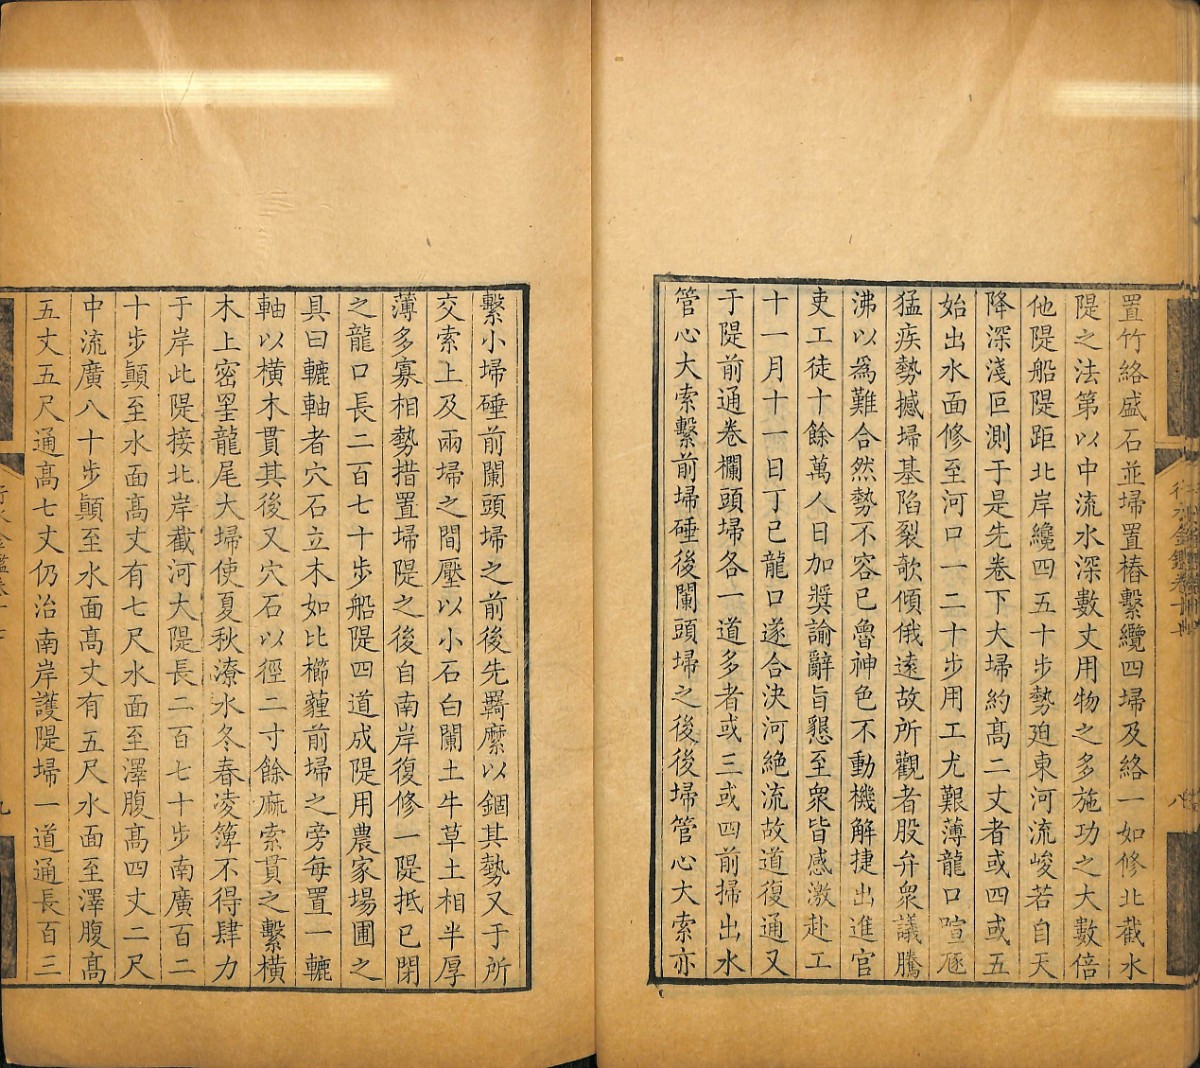 置竹絡盛石並埽置樁繫纜四埽及絡一如修北截水
隄之法第以中流水深數丈用物之多施功之大數倍
他隄船隄距北岸纔四五十步勢迫東河流峻若自天
降深淺叵測于是先卷下大埽約高二丈者或四或五
始出水面修至河口一二十步用工尤艱薄龍口喧豗
猛疾勢撼埽基陷裂欹傾俄遠故所觀者股弁衆議騰
沸以爲難合然勢不容已魯神色不動機解捷出進官
吏工徒十餘萬人日加奬諭辭旨懇至衆皆感激赴工
十一月十一日丁巳龍口遂合決河絶流故道復通又
于隄前通卷欄頭埽各一道多者或三或四前掃出水
管心大索繫前埽硾後闌頭埽之後後埽管心大索亦
繫小埽硾前闌頭埽之前後先羈縻以錮其勢又于所
交索上及兩埽之間壓以小石白闌土牛草土相半厚
薄多寡相勢措置埽隄之後自南岸復修一隄抵已閉
之龍口長二百七十步船隄四道成隄用農家場圃之
具曰轆軸者穴石立木如比櫛薶前埽之旁每置一轆
軸以橫木貫其後又穴石以徑二寸餘麻索貫之繫橫
木上密㙼龍尾大埽使夏秋潦水冬春凌簰不得肆力
于岸此隄接北岸截河大隄長二百七十步南廣百二
十步顚至水面高丈有七尺水面至澤腹高四丈二尺
中流廣八十步顚至水面高丈有五尺水面至澤腹高
五丈五尺通高七丈仍治南岸護隄埽一道通長百三